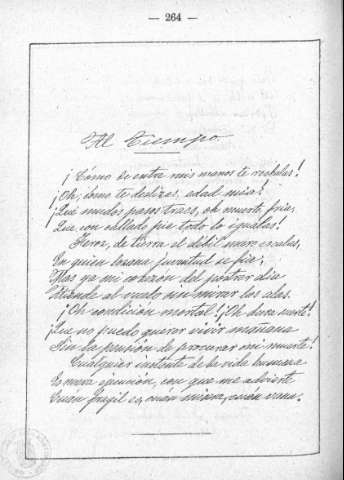 — 264 —
Al Tiempo
¡Cómo de entre mis manos te resbalas!
¡Oh, cómo te deslizas, edad mía!
¡Qué mudos pasos traes, oh muerte fría,
Que con callado pie todo lo igualas!
Feroz, de tierra el débil muro escalas,
En quien lozana juventud se fía;
Mas ya mi corazón del postrer día
Atiende al vuelo sin mirar las alas.
¡Oh condición mortal! ¡Oh dura suerte!
¡Que no puedo querer vivir mañana
Sin la pensión de procurar mi muerte!
Cualquier instante de la vida humana
Es nueva ejecución, con que me advierte
Cuán frágil es, cuán mísera, cuán vana.